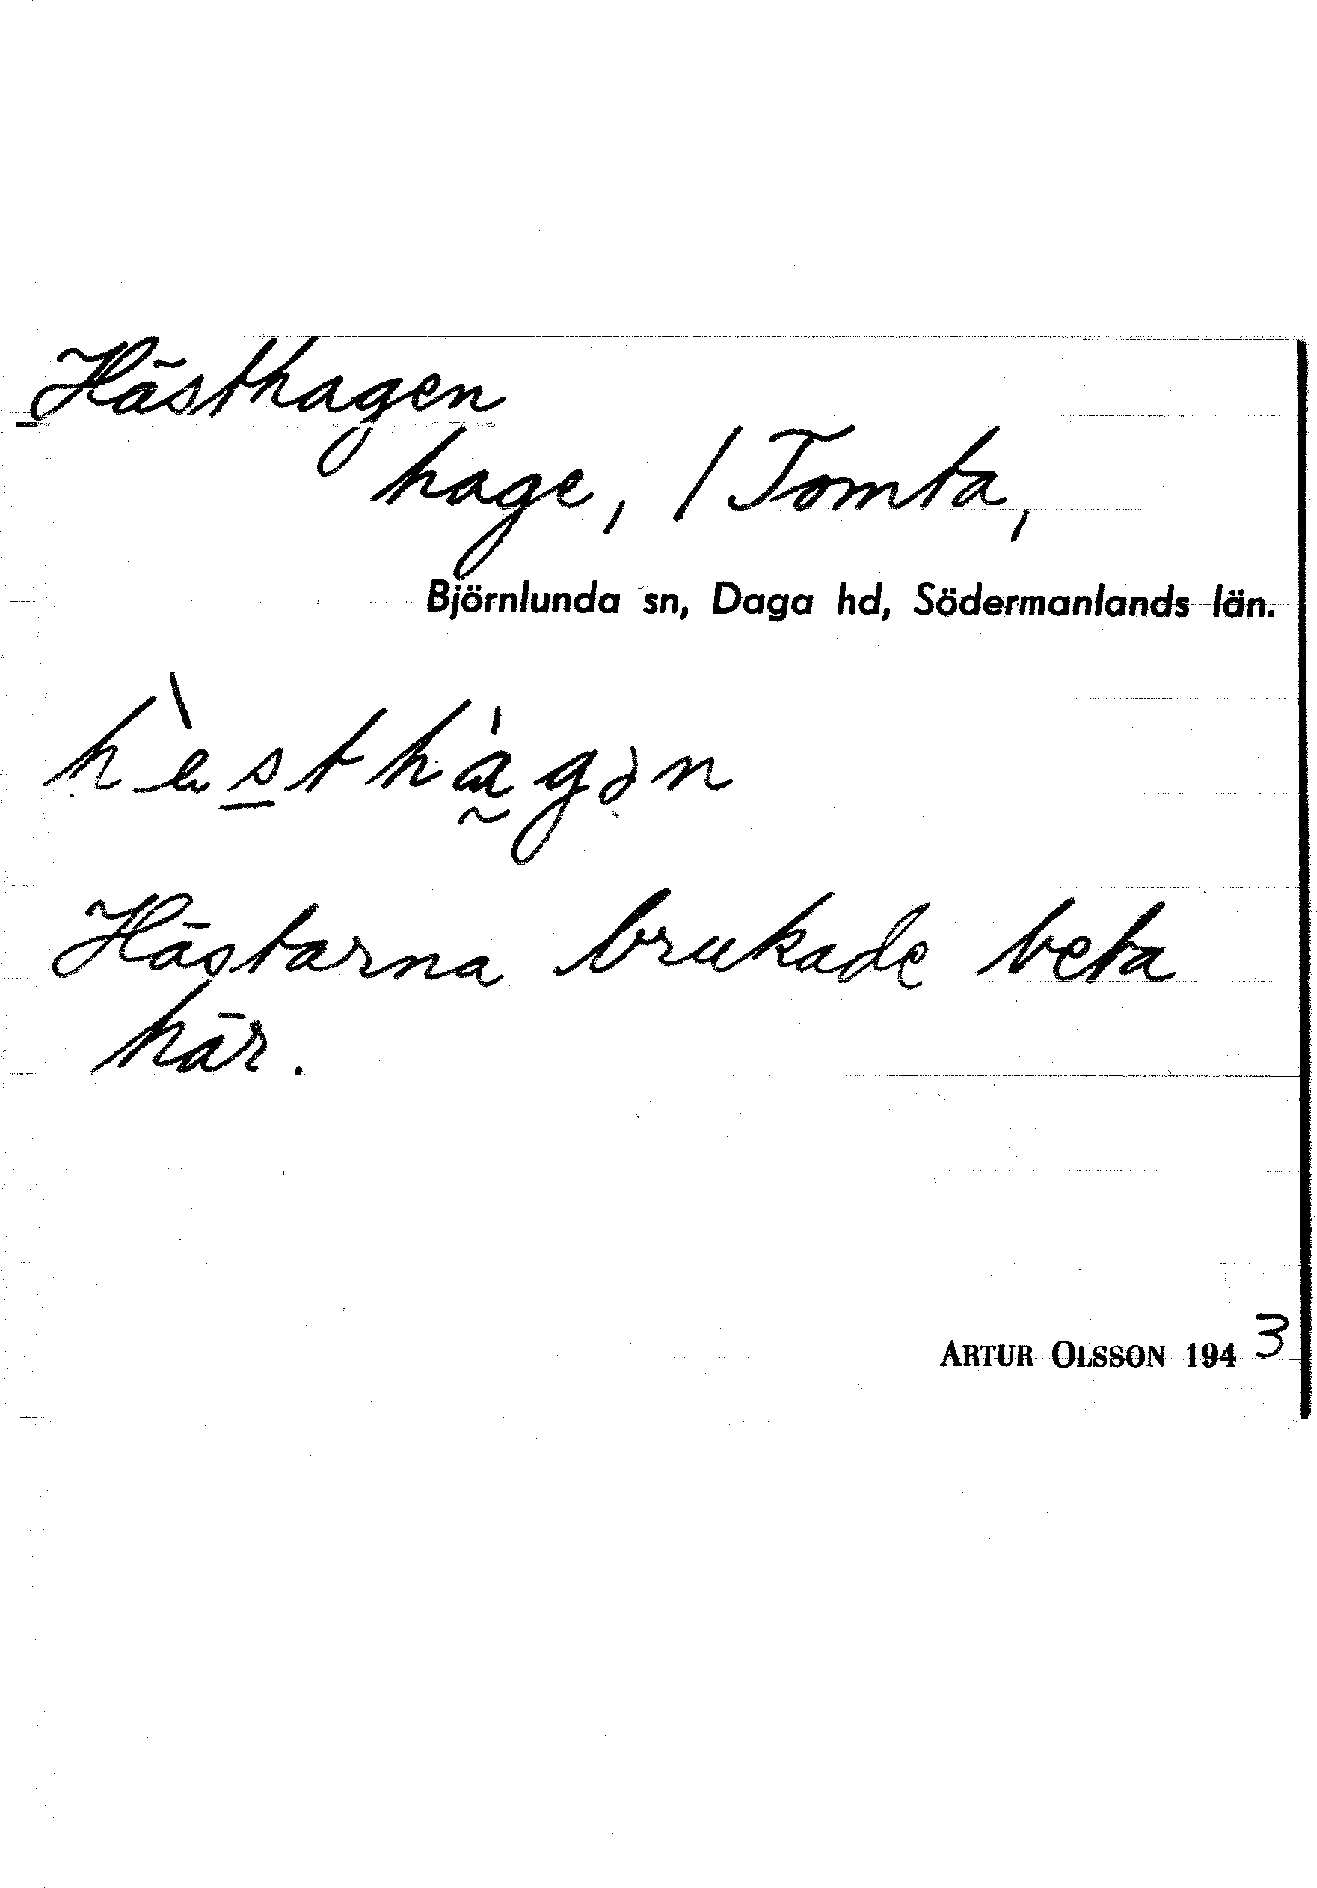 Hästhagen
hage, / Tomta,
Björnlunda sn, Daga hd, Södermanlands län.
hὲsthágən
Hästarna brukade beta
här.
ARTUR OLSSON 1943